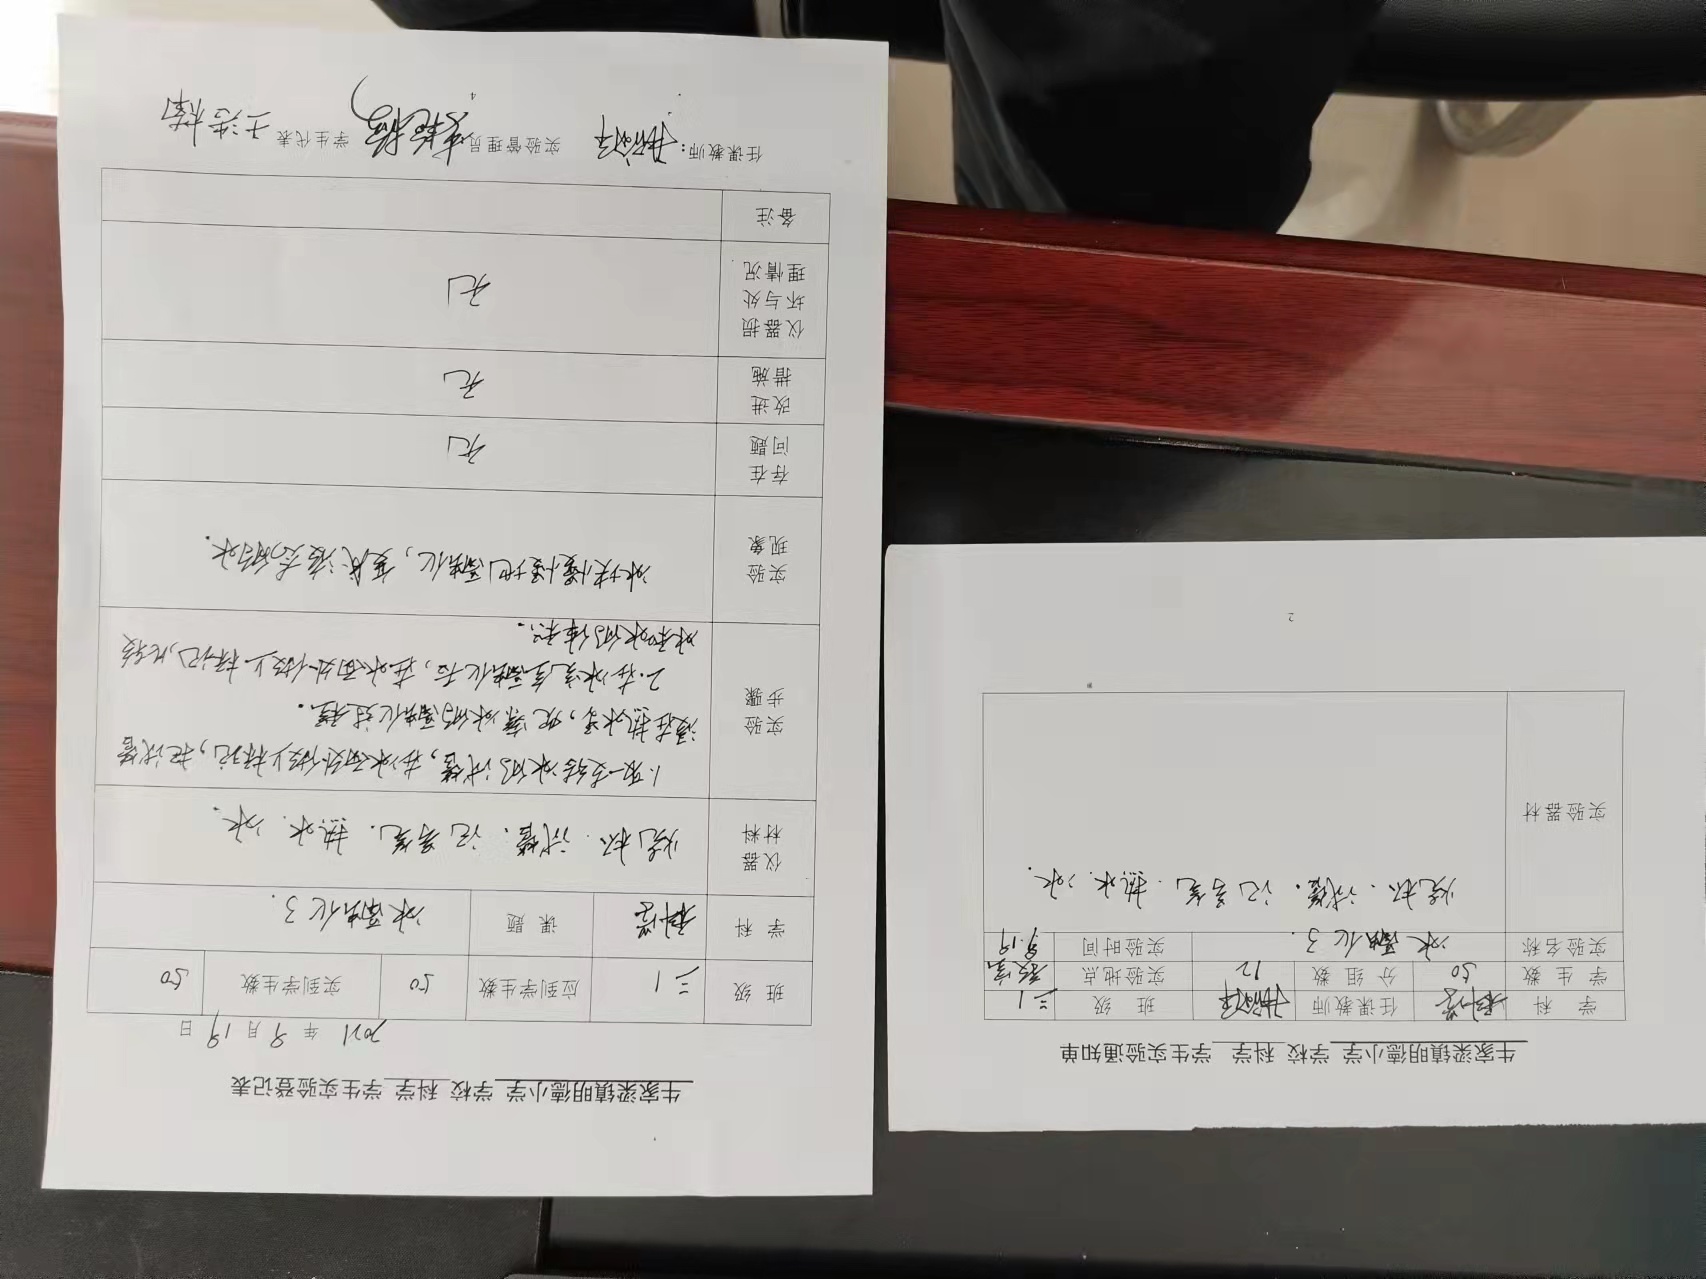 牛家梁镇明德小学 学校 科学 学生实验登记表
2021 年 9 月 19 日
班 级 三1 应到学生数 50 实到学生数 50
学 科 科学 课 题 冰融化了.
仪器
材料
烧杯. 试管. 记号笔. 热水. 冰.
实验
步骤
1.取一支结冰的试管,在冰面处做上标记,把试管
浸在热水里,观察冰的融化过程.
2.在冰完全融化后,在水面处做上标记,比较
冰和水的体积.
实验
现象
冰块慢慢地融化,变成液态的水.
存在
问题
无
改进
措施
无
仪器损
坏与处
理情况
无
备注
任课教师: 实验管理员 学生代表 王浩楠
牛家梁镇明德小学 学校 科学 学生实验通知单
学 科 科学 任课教师 班 级 三1
学 生 数 50 分 组 数 12 实验地点 教室
实验名称 冰融化了. 实验时间 9.19
实验器材 烧杯. 试管. 记号笔. 热水. 冰.
2